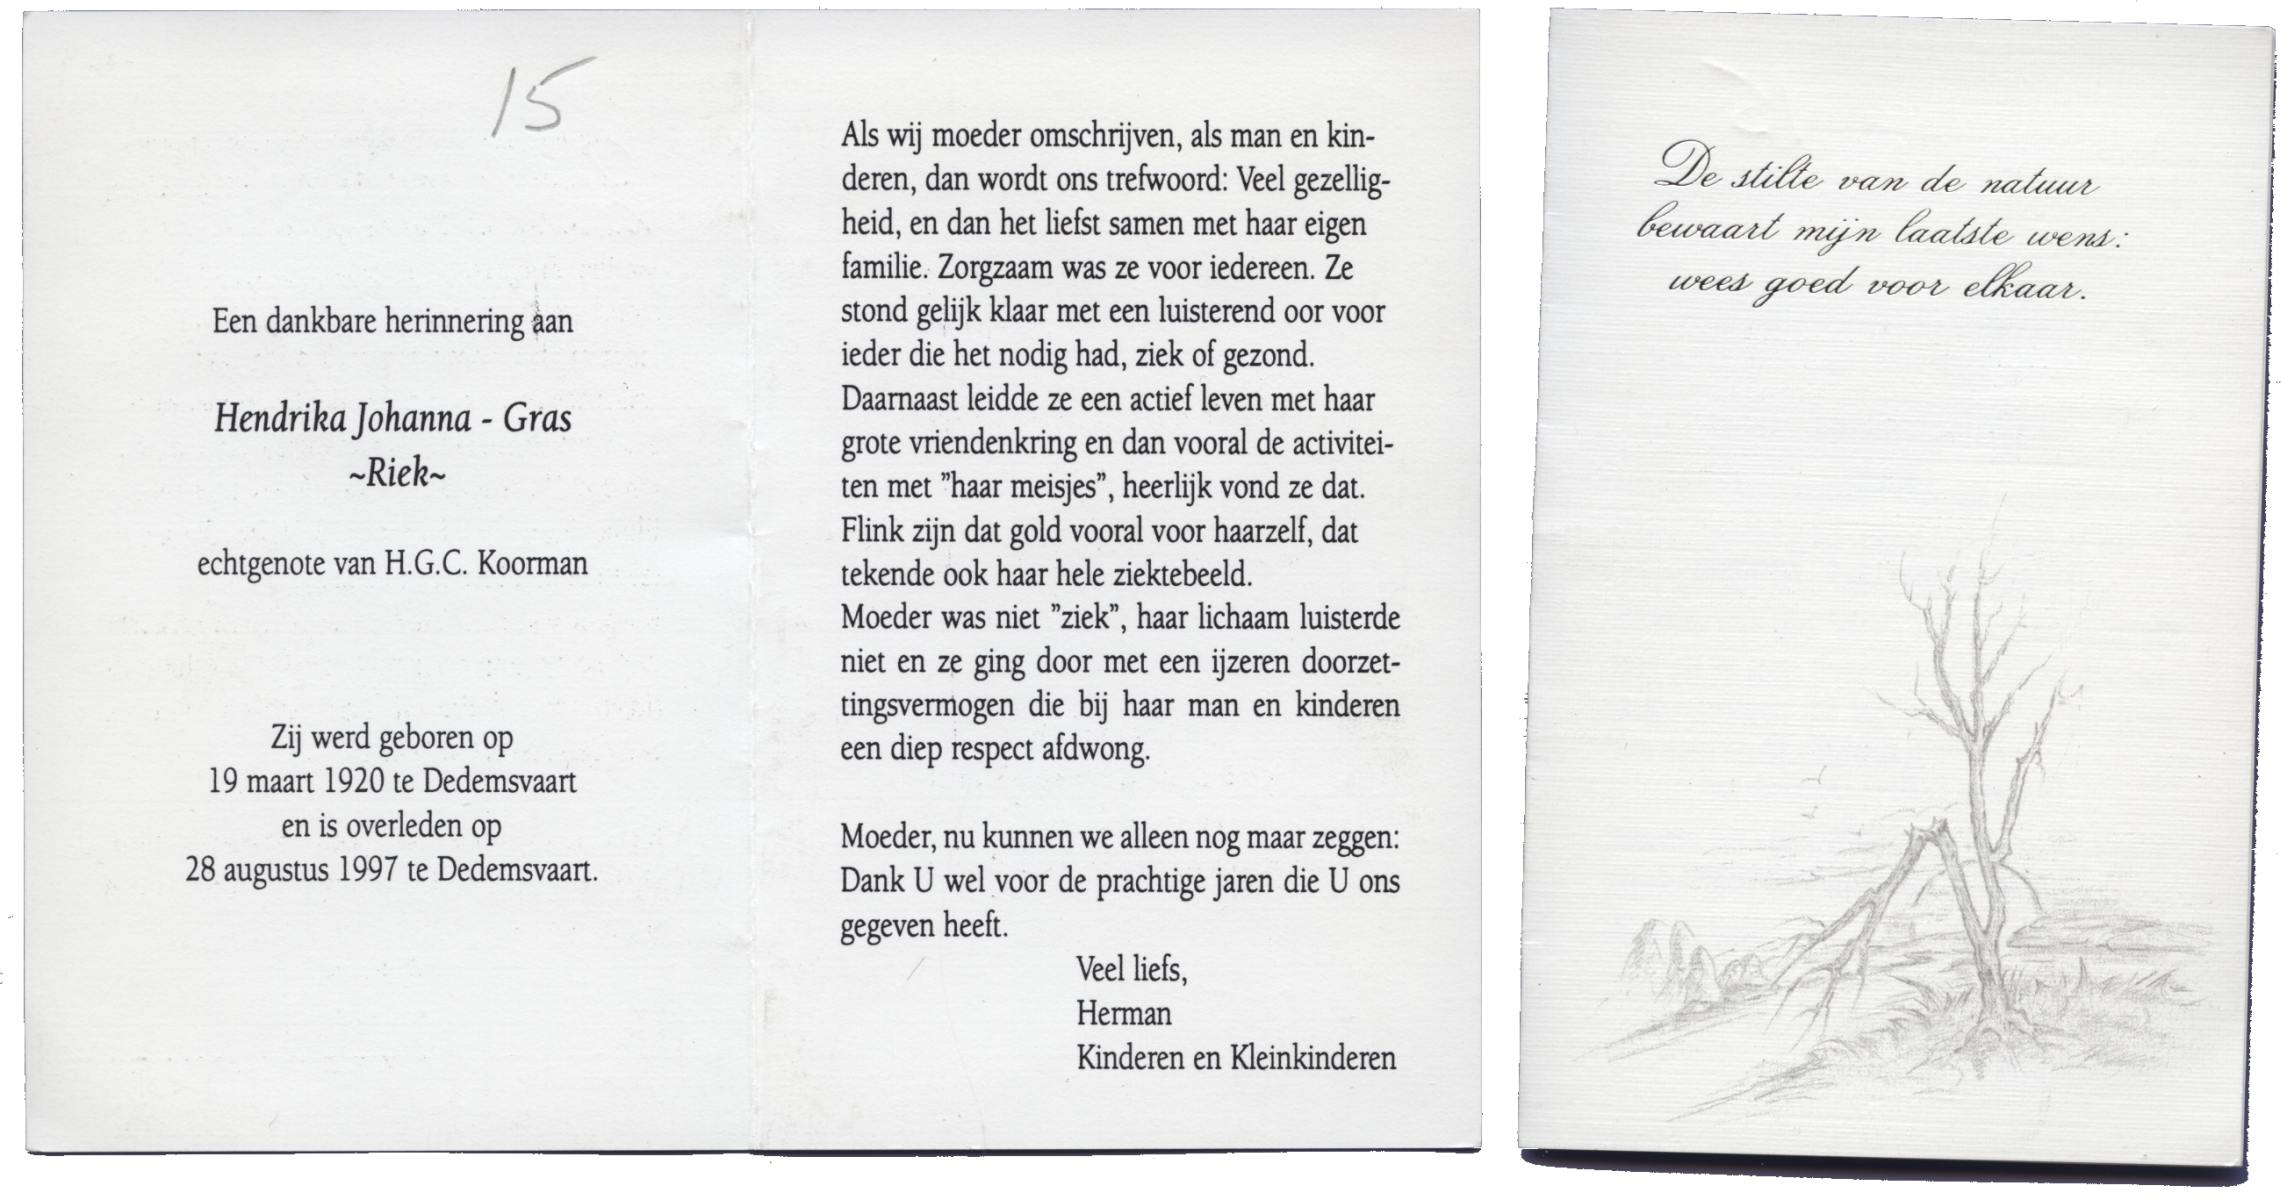 15
Een dankbare herinnering aan
Hendrika Johanna - Gras
~Riek~
echtgenote van H.G.C. Koorman
Zij werd geboren op
19 maart 1920 te Dedemsvaart
en is overleden op
28 augustus 1997 te Dedemsvaart.
Als wij moeder omschrijven, als man en kin-
deren, dan wordt ons trefwoord: Veel gezellig-
heid, en dan het liefst samen met haar eigen
familie. Zorgzaam was ze voor iedereen. Ze
stond gelijk klaar met een luisterend oor voor
ieder die het nodig had, ziek of gezond.
Daarnaast leidde ze een actief leven met haar
grote vriendenkring en dan vooral de activitei-
ten met ”haar meisjes”, heerlijk vond ze dat.
Flink zijn dat gold vooral voor haarzelf, dat
tekende ook haar hele ziektebeeld.
Moeder was niet ”ziek”, haar lichaam luisterde
niet en ze ging door met een ijzeren doorzet-
tingsvermogen die bij haar man en kinderen
een diep respect afdwong.
Moeder, nu kunnen we alleen nog maar zeggen:
Dank U wel voor de prachtige jaren die U ons
gegeven heeft.
Veel liefs,
Herman
Kinderen en Kleinkinderen
De stilte van de natuur
bewaart mijn laatste wens:
wees goed voor elkaar.